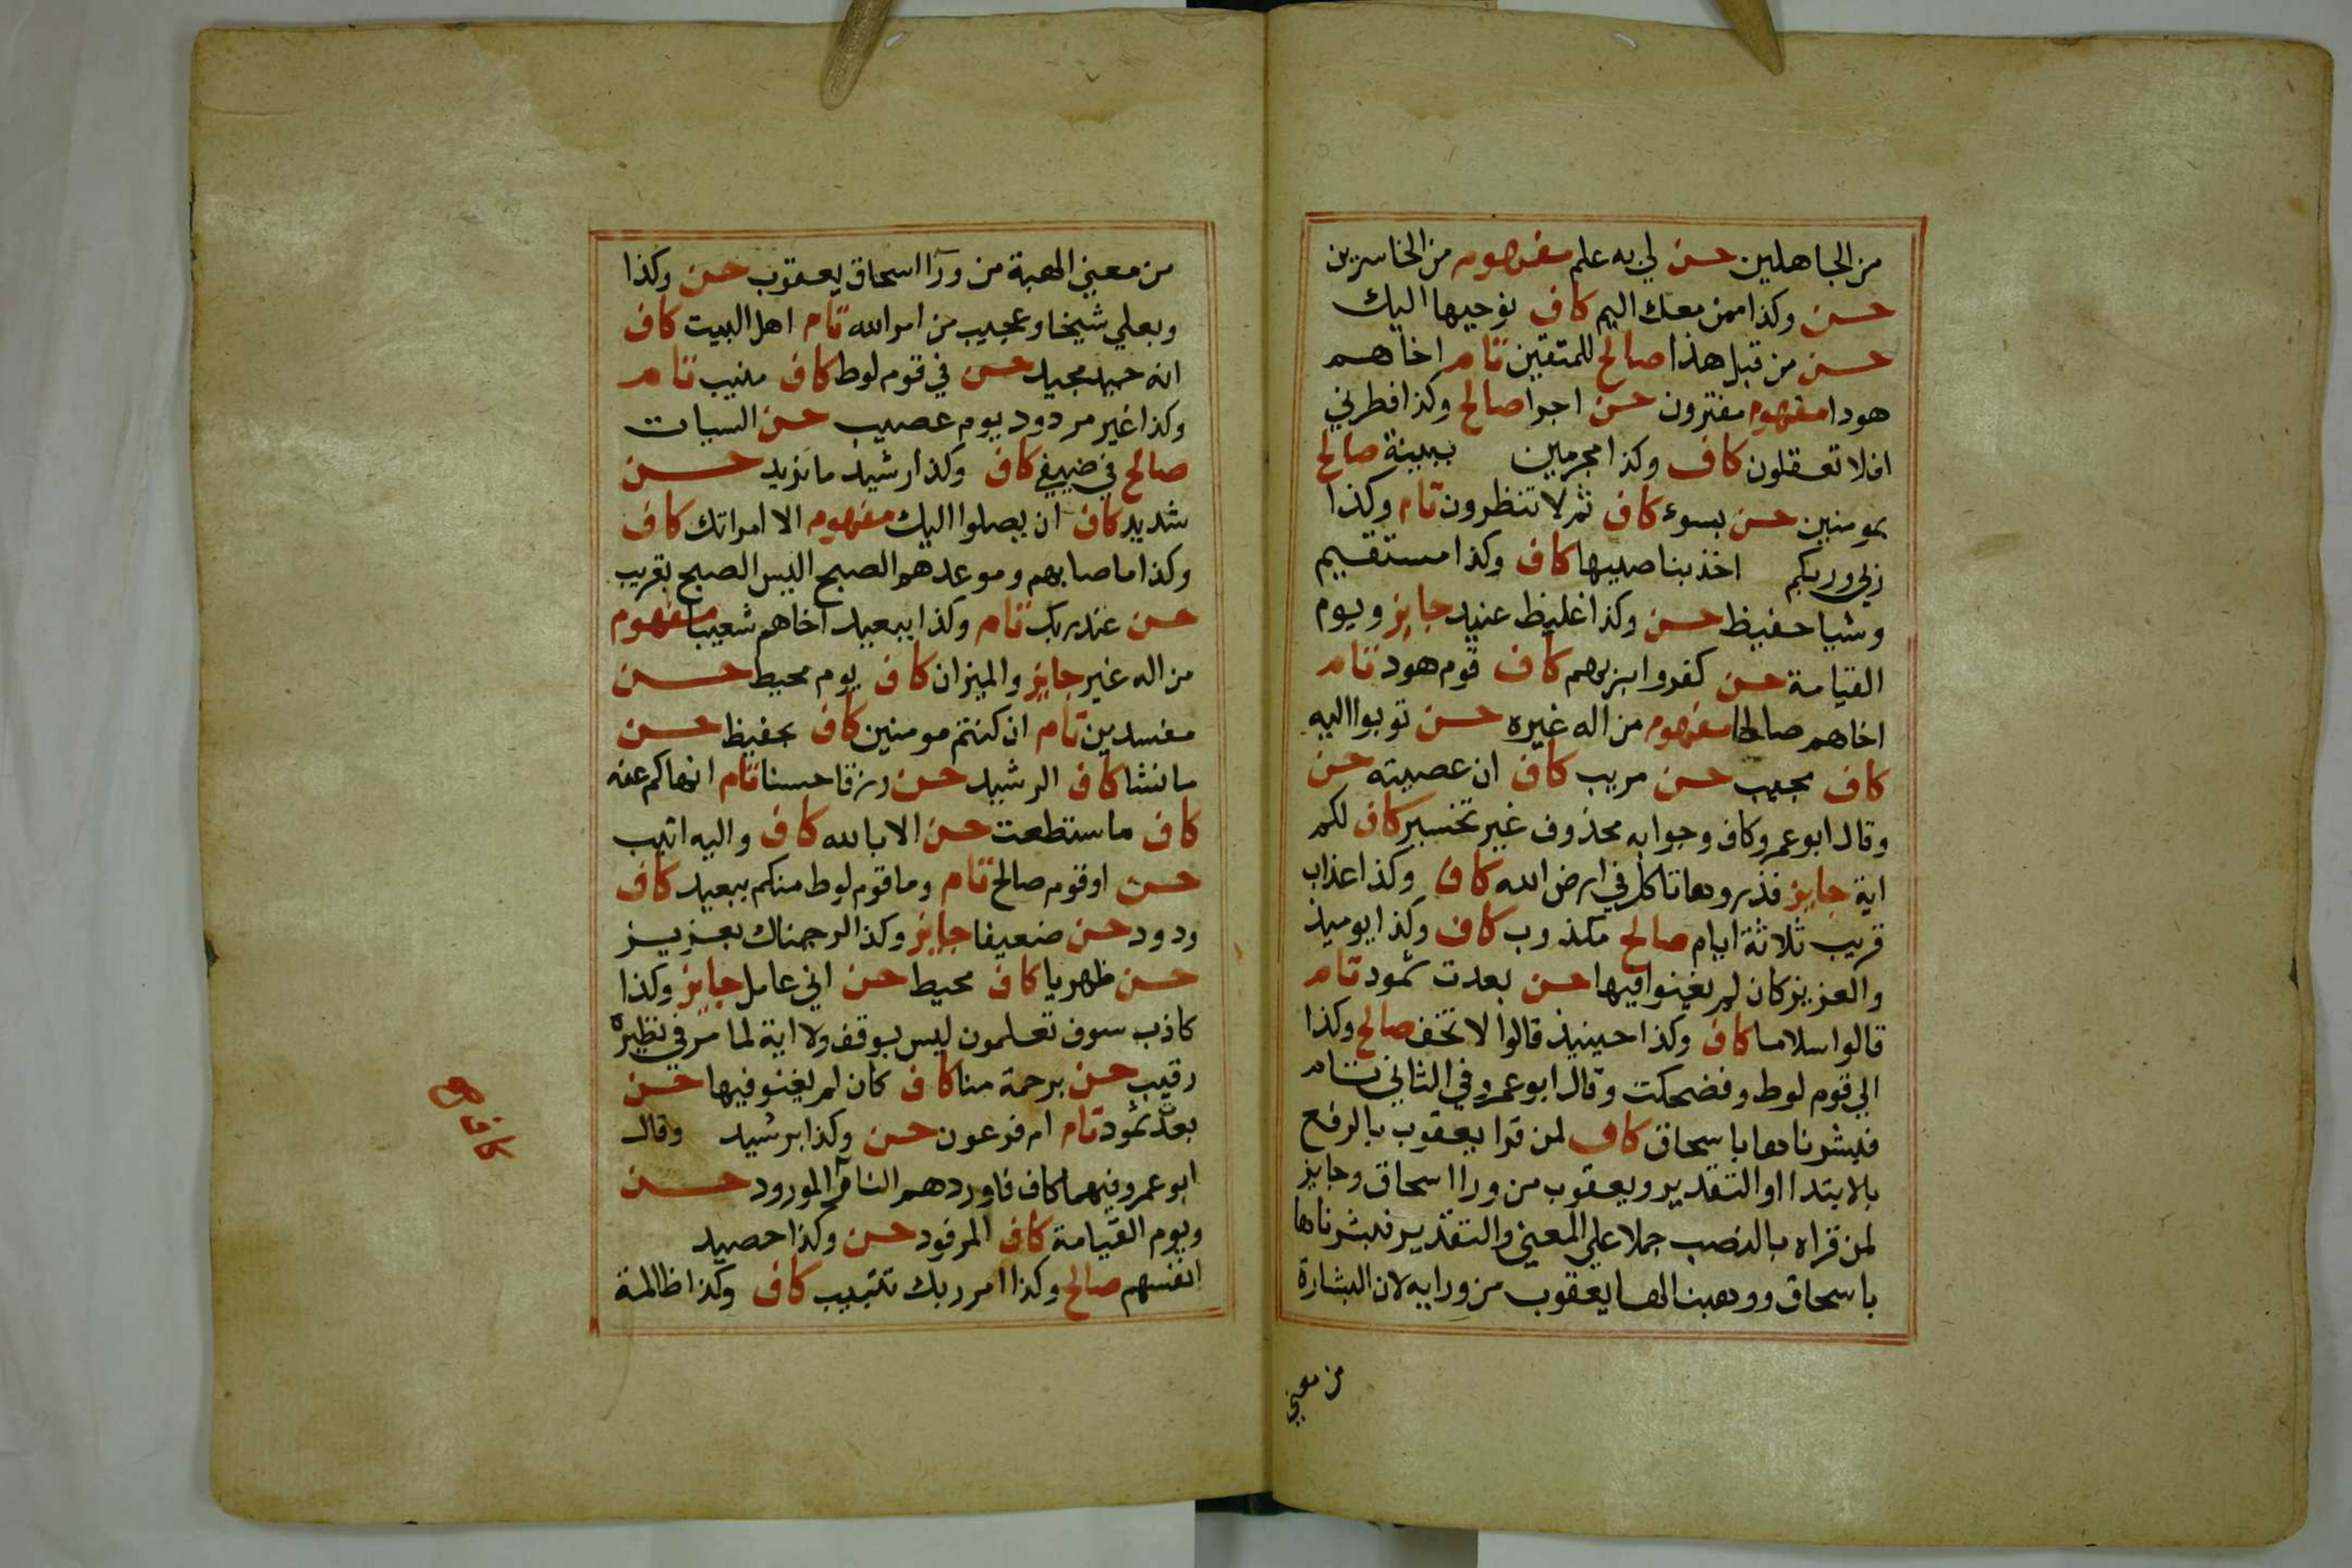 من الجاهلين حسن لي به علم مفهوم من الخاسرين
حسن وكذا ممن معك اليم كاف نوحيها اليك
حسن من قبل هذا صالح للمتقين تام اخاهم
هودا مفهوم مفترون حسن اجرا صالح وكذا فطرني
افلا تعقلون كاف وكذا مجرمين ببينة صالح
بمومنين حسن بسوء كاف ثم لا تنظرون تام وكذا
ربي وربكم اخذ بناصيتها كاف وكذا مستقيم
وشيا حفيظ حسن وكذا غليظ عنيد جايز ويوم
القيامة حسن كفروا بربهم كاف قوم هود تام
اخاهم صالحا مفهوم من اله غيره حسن توبوا اليه
كاف مجيب حسن مريب كاف ان عصيته حسن
وقال ابو عمرو كاف وجوابه محذوف غير تخسير كاف لكم
اية جايز فذروها تاكل في ارض الله كاف وكذا عذاب
قريب ثلاثة ايام صالح مكذوب كاف وكذا يوميذ
والعزيز كان لم يغنوا فيها حسن بعدت ثمود تام
قالوا سلاما كاف وكذا حينيذ قالوا لا تخف صالح وكذا
الي قوم لوط وفضحكت وقال ابو عمرو في الثاني تام
فبشرناها باسحاق كاف لمن قرا يعقوب بالرفع
بالابتدا او التقدير ويعقوب من ورا اسحاق وجايز
لمن قراه بالنصب حملا علي المعني والتقدير فبشرناها
باسحاق ووهبنا لها يعقوب من ورايه لان البشارة
من معني
من معني الهبة من ورآ اسحاق يعقوب حسن وكذا
وبعلي شيخا وعجيب من امر الله تام اهل البيت كاف
انه حميد مجيد حسن في قوم لوط كاف منيب تام
وكذا غير مردود يوم عصيب حسن السيات
صالح في ضيفي كاف وكذا رشيد ما نريد حسن
شديد كاف ان يصلوا اليك مفهوم الا امراتك كاف
وكذا ما صابهم وموعدهم الصبح اليس الصبح بقريب
حسن عند ربك تام وكذا ببعيد اخاهم شعيبا مفهوم
من اله غير جايز والميزان كاف يوم محيط حسن
مفسدين تام ان كنتم مومنين كاف بحفيظ حسن
ما نشا كاف الرشيد حسن رزقا حسنا تام انهاكم عنه
كاف ما ستطعت حسن الا بالله كاف واليه انيب
حسن او قوم صالح تام وما قوم لوط منكم ببعيد كاف
ودود حسن ضعيفا جايز وكذا لرجمناك بعزيز
حسن ظهريا كاف محيط حسن اني عامل جايز وكذا
كاذب سوف تعلمون ليس بوقف ولا اية لما مر في نظيره
رقيب حسن برحمة منا كاف كان لم يغنو فيها حسن
بعدت ثمود تام ام فرعون حسن وكذا برشيد وقال
ابو عمرو فيهما كاف فاوردهم النار المورود حسن
ويوم القيامة كاف المرفود حسن وكذا حصيد
انفسهم صالح وكذا امر ربك تتبيب كاف وكذا ظالمة
كاف